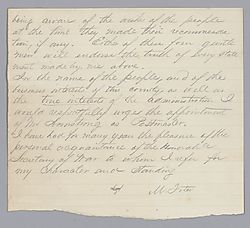 being aware of the wishes of the people
at the time they made their recommenda
tion, if any. Either of these four gentle
men will endorse the truth of every state
ment made by me above.
In the name of the people, and of the
business interests of this county, as well as
the true interests of the Administration I
would respectfully urges the appointment
of Mr Armstrong as Postmaster.
I have had for many years the pleasure of the
personal acquaintance of the Honorable
Secretary of War to whom I refer for
my Character and Standing